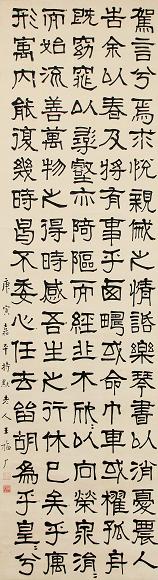 駕言兮焉求悅親戚之情話樂琴書以消憂農人
告余以春及將有事乎西疇或命巾車或櫂孤舟
既窈窕以尋壑亦崎嶇而經丘木欣〻以向榮泉涓〻
而始流善萬物之得時感吾生之行休已矣乎寓
形宇內能復幾時曷不委心任去留胡為乎皇〻兮
庚寅嘉平持默老人王福厂